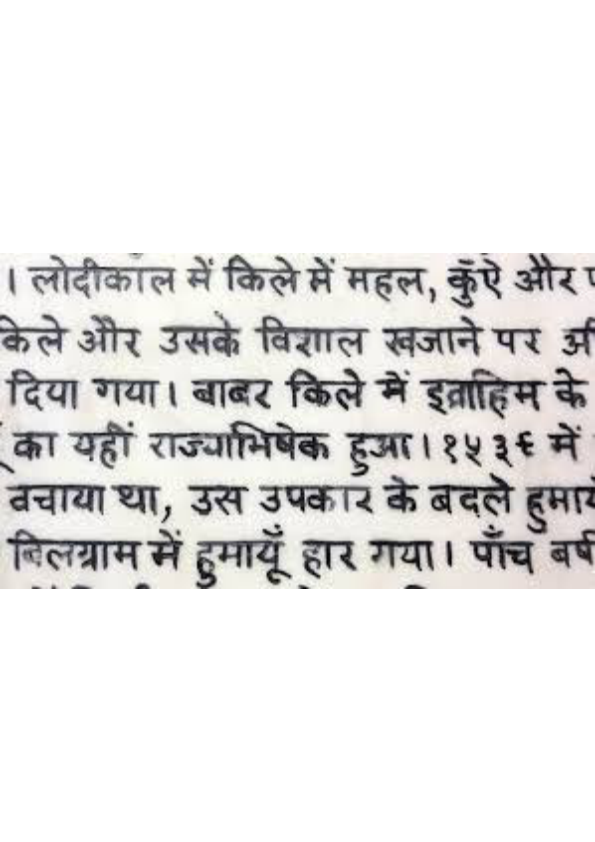 । लोदीकाल में किले में महल, कुँऐ और
किले और उसके विशाल खजाने पर
दिया गया। बाबर किले में इब्राहिम के
का यहीं राज्याभिषेक हुआ। १५३६ में
बचाया था, उस उपकार के बदले हुमायूँ
बिलग्राम में हुमायूँ हार गया। पाँच वर्ष